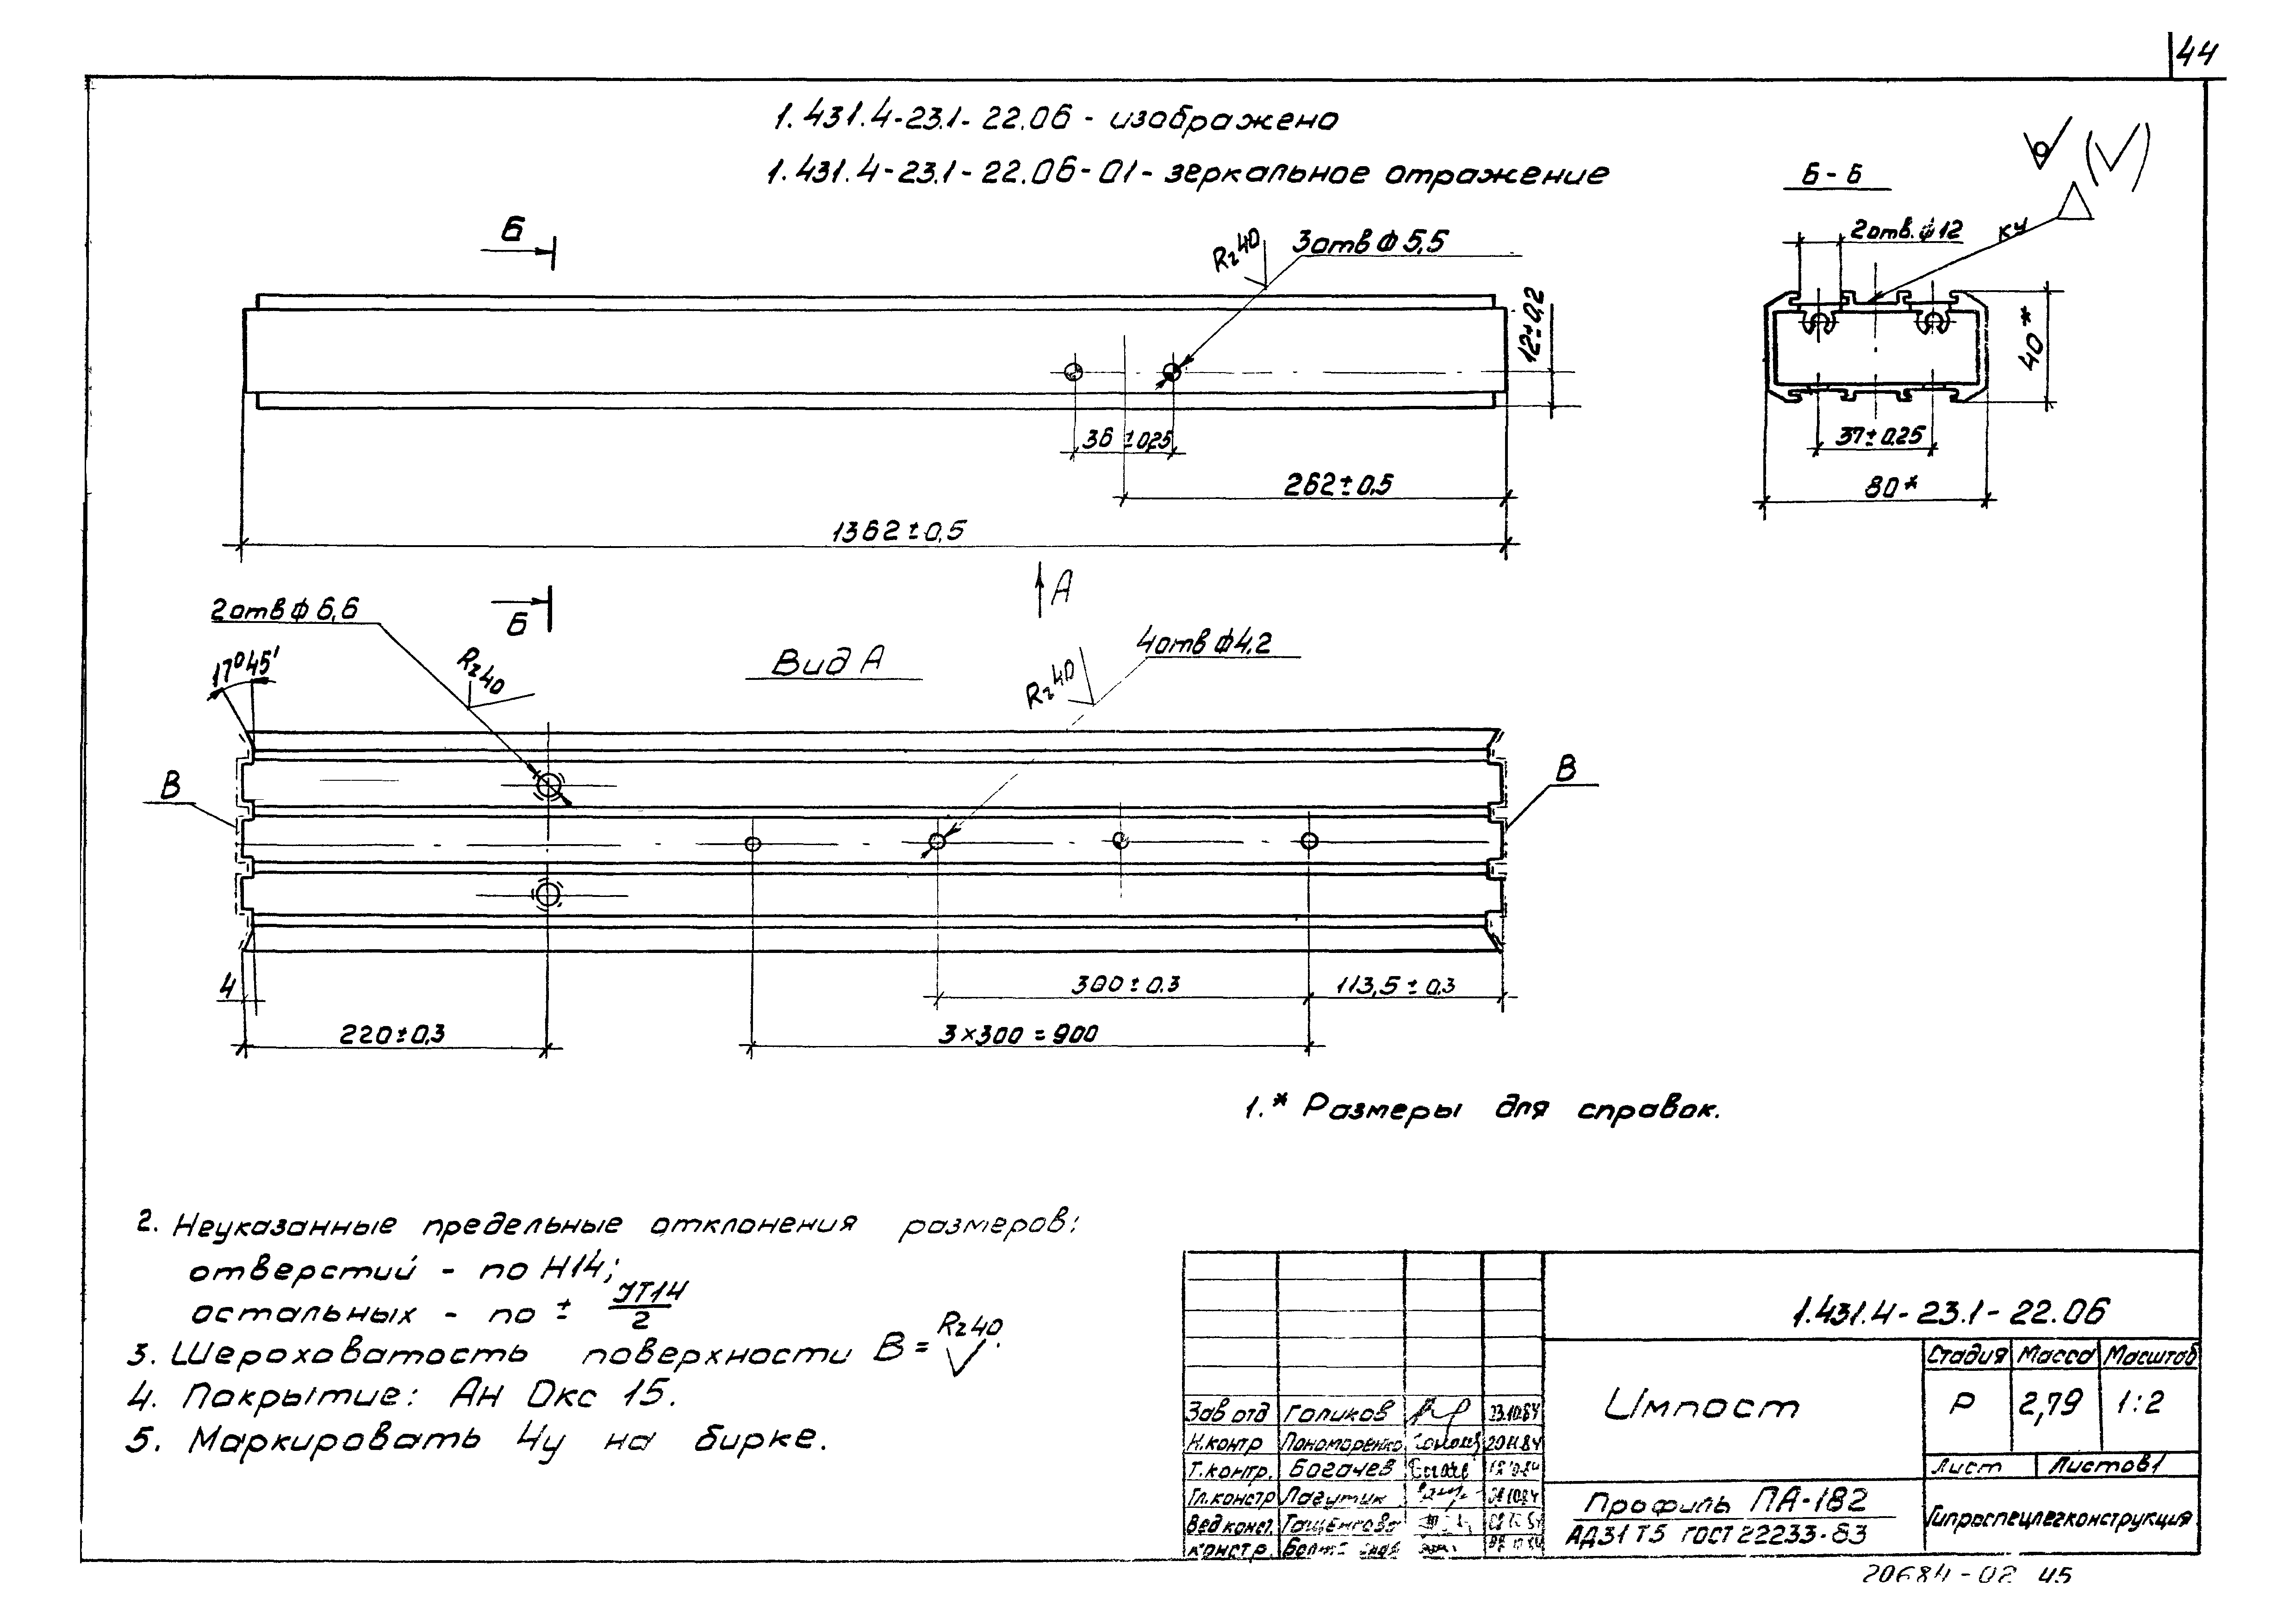 44
1.431.4-23.1-22.06 - изображено
1.431.4-23.1-22.06-01 - зеркальное отражение
Б-Б
Б
Rz40
3 отв ф 5,5
2 отв. ф 12
КУ
12±0,2
40*
36 ±0,25
37±0.25
262±0,5
80*
1362±0,5
Б
А
2 отв ф 6,6
17°45'
Rz40
Вид А
Rz40
4 отв ф 4,2
В
В
4
300±0.3
113,5±0.3
220±0,3
3×300=900
1.* Размеры для справок.
2. Неуказанные предельные отклонения размеров:
отверстий - по H14;
остальных - по ± JT14/2
3. Шероховатость поверхности В = Rz40.
4. Покрытие: Ан Окс 15.
5. Маркировать Чу на бирке.
1.431.4-23.1-22.06
Стадия Масса Масштаб
Импост
Р 2,79 1:2
Лист Листов 1
Профиль ПА-182
АД31 Т5 ГОСТ 22233-83
Гипроспецлегконструкция
Зав отд Голиков 23.10.84
Н.контр Пономаренко
Т.контр. Богачев
Гл.констр Лагутин
Вед конст.
констр.
20684-02 45